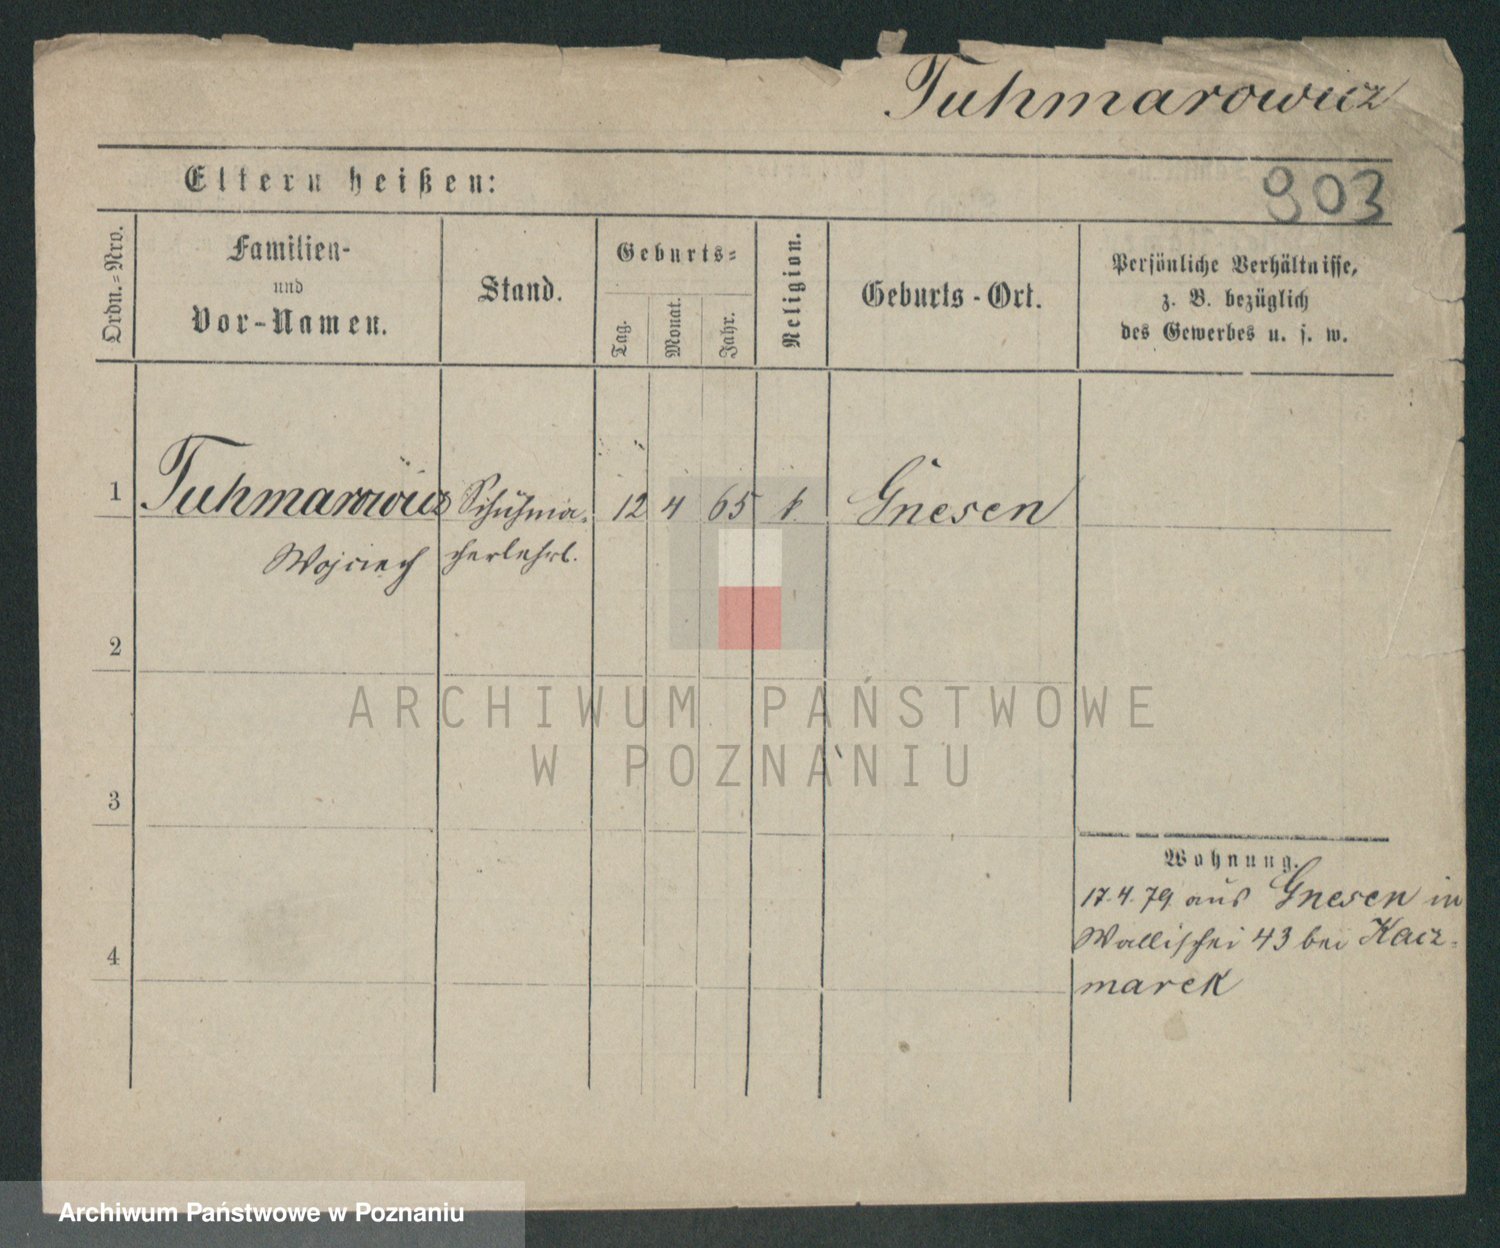 Tuhmarowicz
Eltern heißen:
903
Ordn.=Nro.
Familien-
und
Vor-Namen.
Stand.
Geburts=
Tag.
Monat.
Jahr.
Religion.
Geburts-Ort.
Persönliche Verhältnisse,
z. B. bezüglich
des Gewerbes u. s. w.
1 Tuhmarowicz Schuhma- 12 4 65 k Gnesen
Wojciech cherlehrl.
2
3
4
Wohnung.
17.4.79 aus Gnesen in
Wallischei 43 bei Kacz-
marek
ARCHIWUM PAŃSTWOWE
W POZNANIU
Archiwum Państwowe w Poznaniu